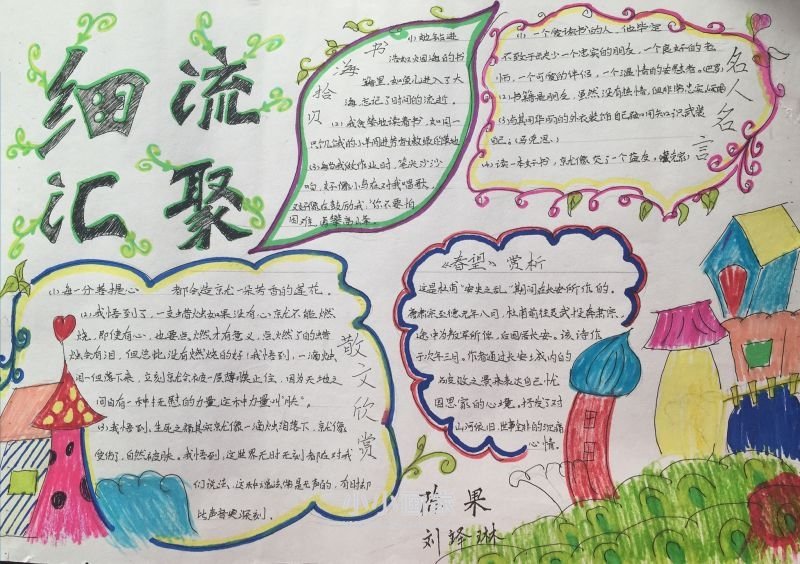 细流
汇聚
书海拾贝
(1)
浩如烟海的书
籍里，如鱼儿进入了大
海，忘记了时间的流逝。
(2)我
(3)每当我做作业时，笔尖沙沙
响，好像小鸟在对我唱歌，
又好像在鼓励我：你不要怕
困难，勇攀高峰。
名人名言
(1)一个爱读书的人，他毕定
不致于缺少一个忠实的朋友，一个良好的老
师，一个可爱的伴侣，一个温情的安慰者。
(2)书籍是朋友，虽然没有热情，但非常忠实。
(3)与其用华丽的外衣装饰自己，不如用知识武装
自己。(马克思)
(4)读一本好书，就像交了一个益友。
散文欣赏
(1)每一分卷提心 都会绽就一朵芳香的莲花。
(2)我悟到了，一支蜡烛如果没有心就不能燃
烧，即使有心，也要点燃才有意义，点燃了的蜡
烛会有泪，但总比没有燃烧的好！我悟到，一滴烛
泪一但落下来，立刻就会被一层薄膜止住，因为天地之
间自有一种抚慰的力量，这种力量叫"肤"。
(3)我悟到，生死之痛其实就像一滴烛泪落下，就像
受伤了，自然破肤。我悟到，这世界无时无刻都在对我
们说法，这种说法常是无声的，有时却
比声音更深刻。
《春望》赏析
这是杜甫"安史之乱"期间在长安所作的。
唐肃宗至德元年八月，杜甫前往灵武投奔肃宗，
途中为叛军所俘，后困居长安。该诗作
于次年三月。作者通过长安城内的
破败之景来表达自己忧
国思家的心境。抒发了对
山河依旧，世事全非的沉痛
心情。
陈果
刘铎琳